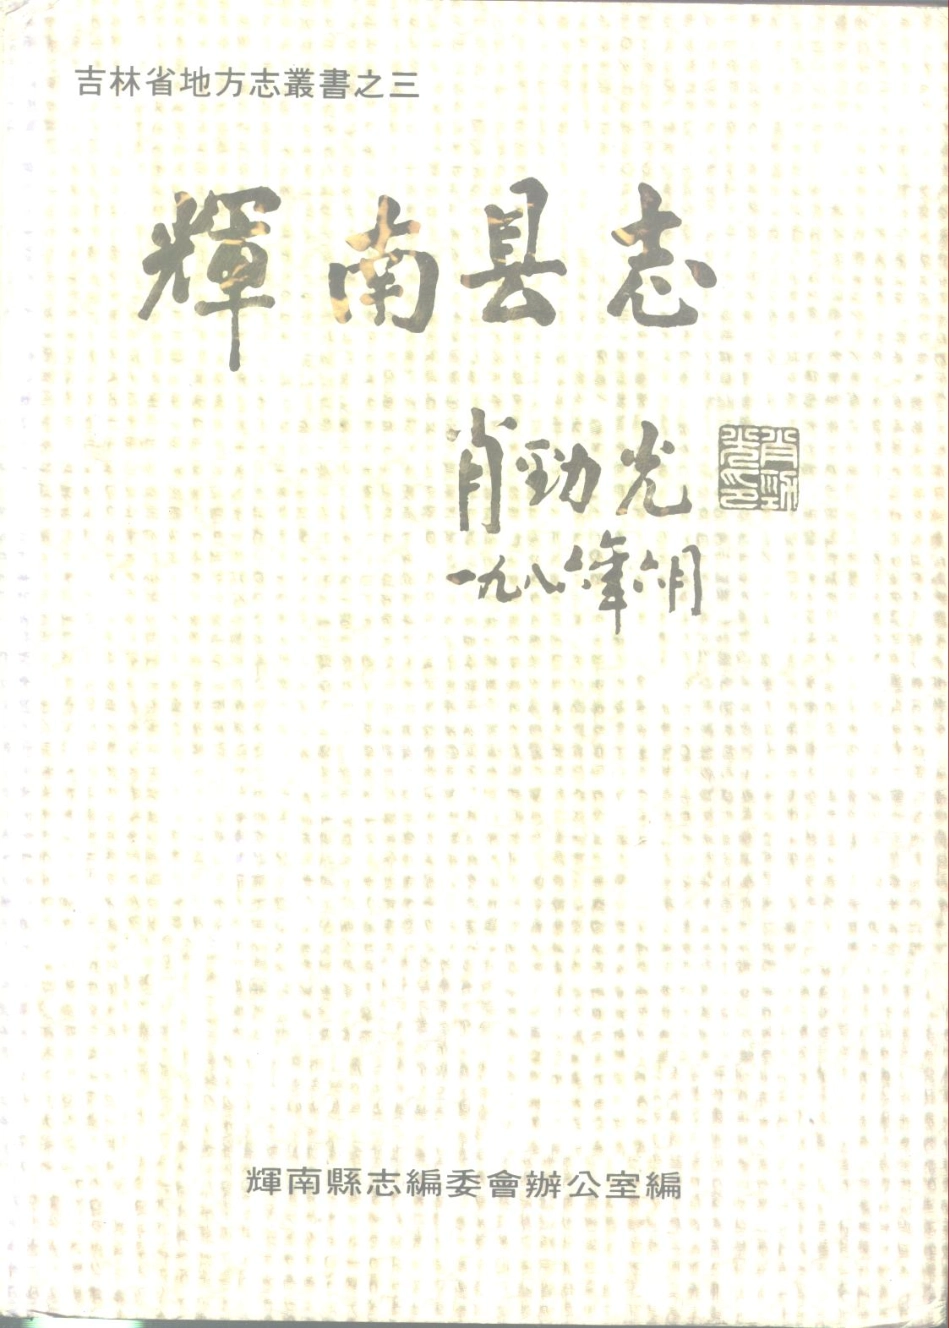 吉林省地方志叢書之三
輝南县志
肖勁光
肖勁光印
一九八六年六月
輝南縣志編委會辦公室編